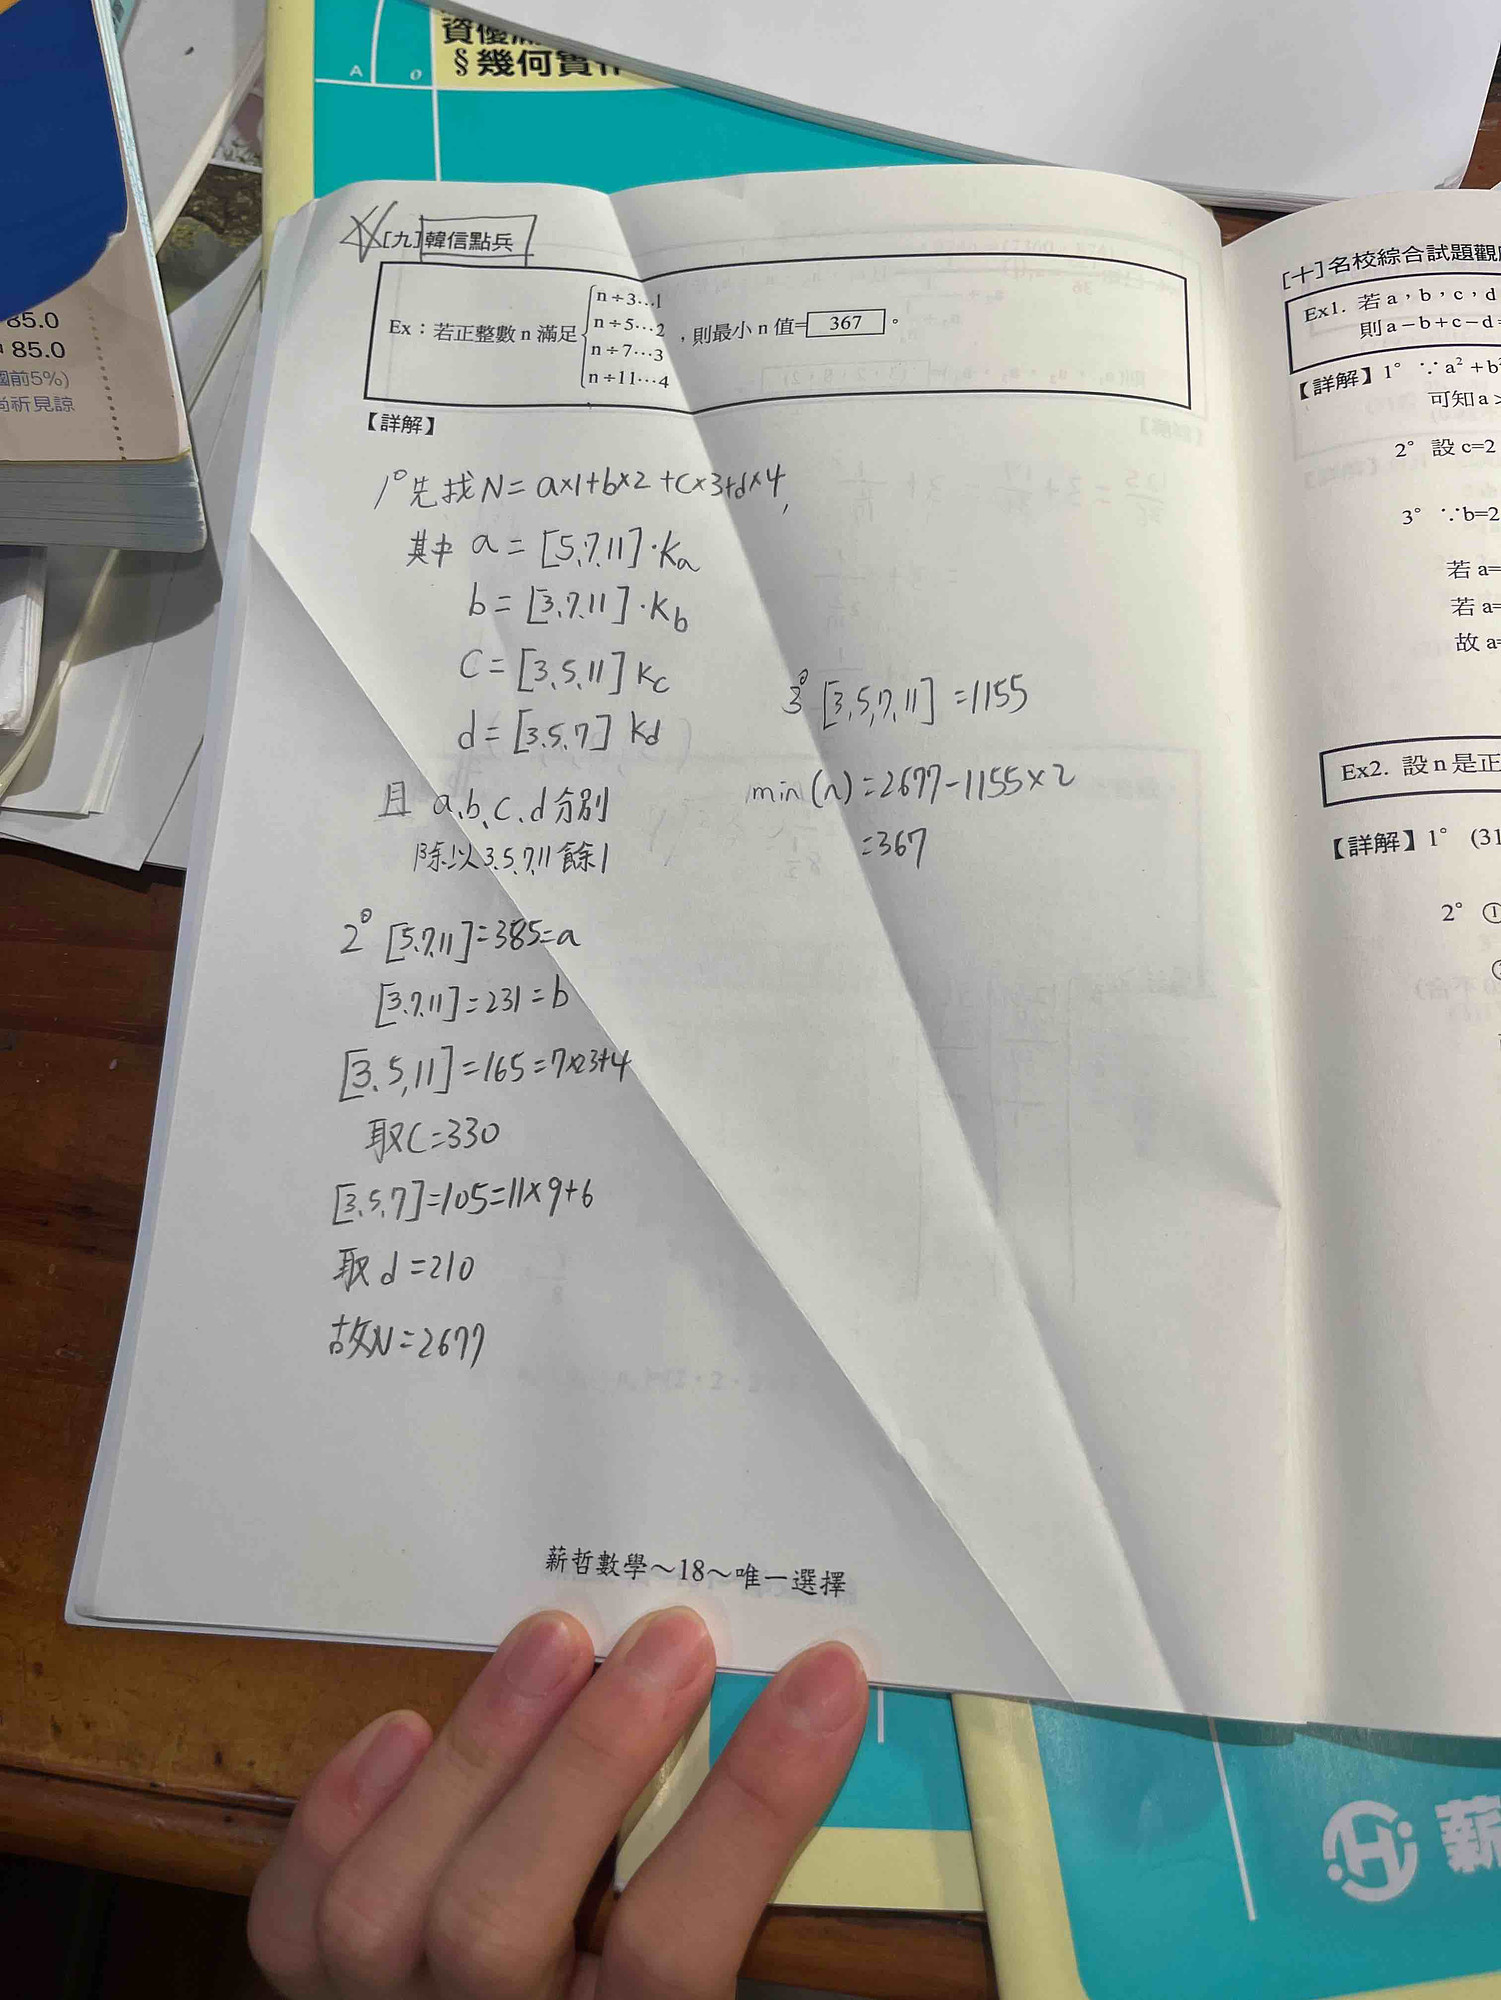 §幾何實作
A
o
85.0
85.0
國前5%)
尚祈見諒
[九]韓信點兵
n÷3…1
n÷5…2
Ex：若正整數 n 滿足 ，則最小 n 值= 367 。
n÷7…3
n÷11…4
【詳解】
1° 先找 N = a×1+b×2+c×3+d×4,
其中 a = [5,7,11]·Ka
b = [3,7,11]·Kb
C = [3,5,11] Kc
d = [3,5,7] Kd
且 a、b、c、d 分別
除以3.5.7.11 餘1
2° [5,7,11]=385=a
[3,7,11]=231=b
[3,5,11]=165=7×23+4
取C=330
[3,5,7]=105=11×9+6
取 d=210
故N=2677
3° [3,5,7,11]=1155
min(n)=2677-1155×2
=367
薪哲數學～18～唯一選擇
[十]名校綜合試題觀
Ex1. 若 a，b，c，d
則 a－b＋c－d
【詳解】1° ∵ a²＋b
可知 a＞
2° 設 c=2
3° ∵b=2
若 a=
若 a=
故 a=
Ex2. 設 n 是正
【詳解】1° (31
2° ①
薪